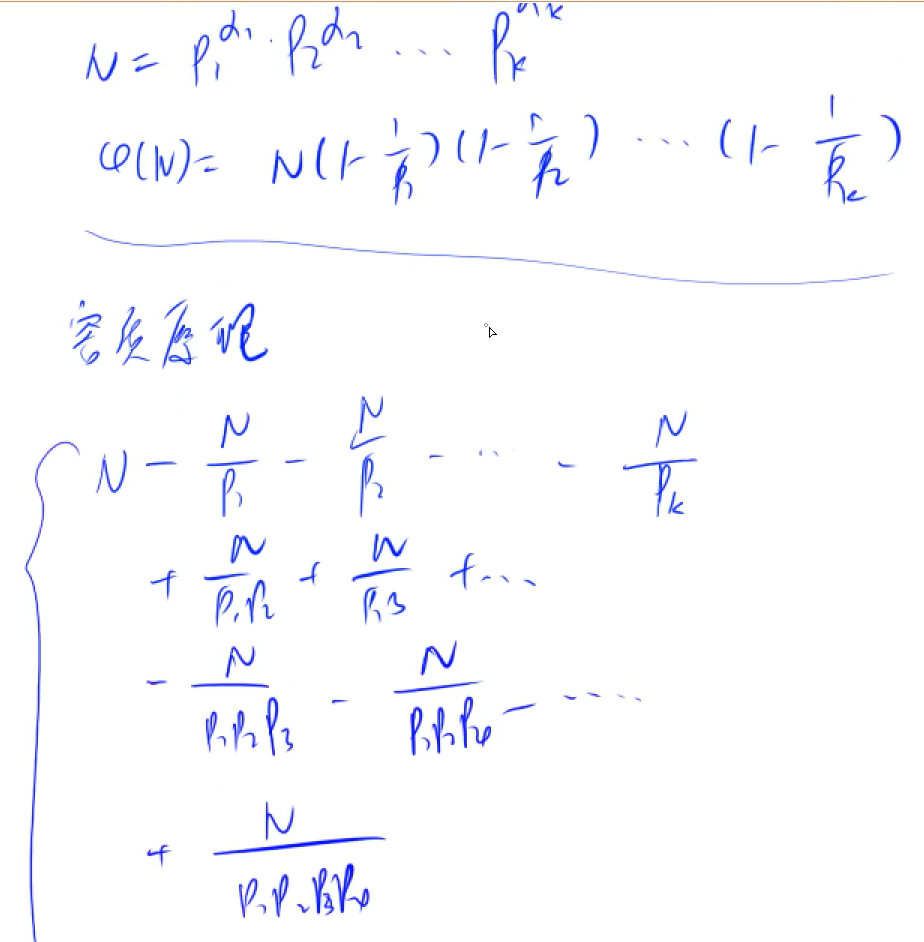 N = P₁^α₁ · P₂^α₂ ... Pₖ^αₖ
φ(N) = N(1 - 1/P₁)(1 - 1/P₂) ... (1 - 1/Pₖ)
容斥原理
N - N/P₁ - N/P₂ - ... - N/Pₖ
+ N/P₁P₂ + N/P₁3 + ...
- N/P₁P₂P₃ - N/P₁P₂P₄ - ....
+ N/P₁P₂P₃P₄